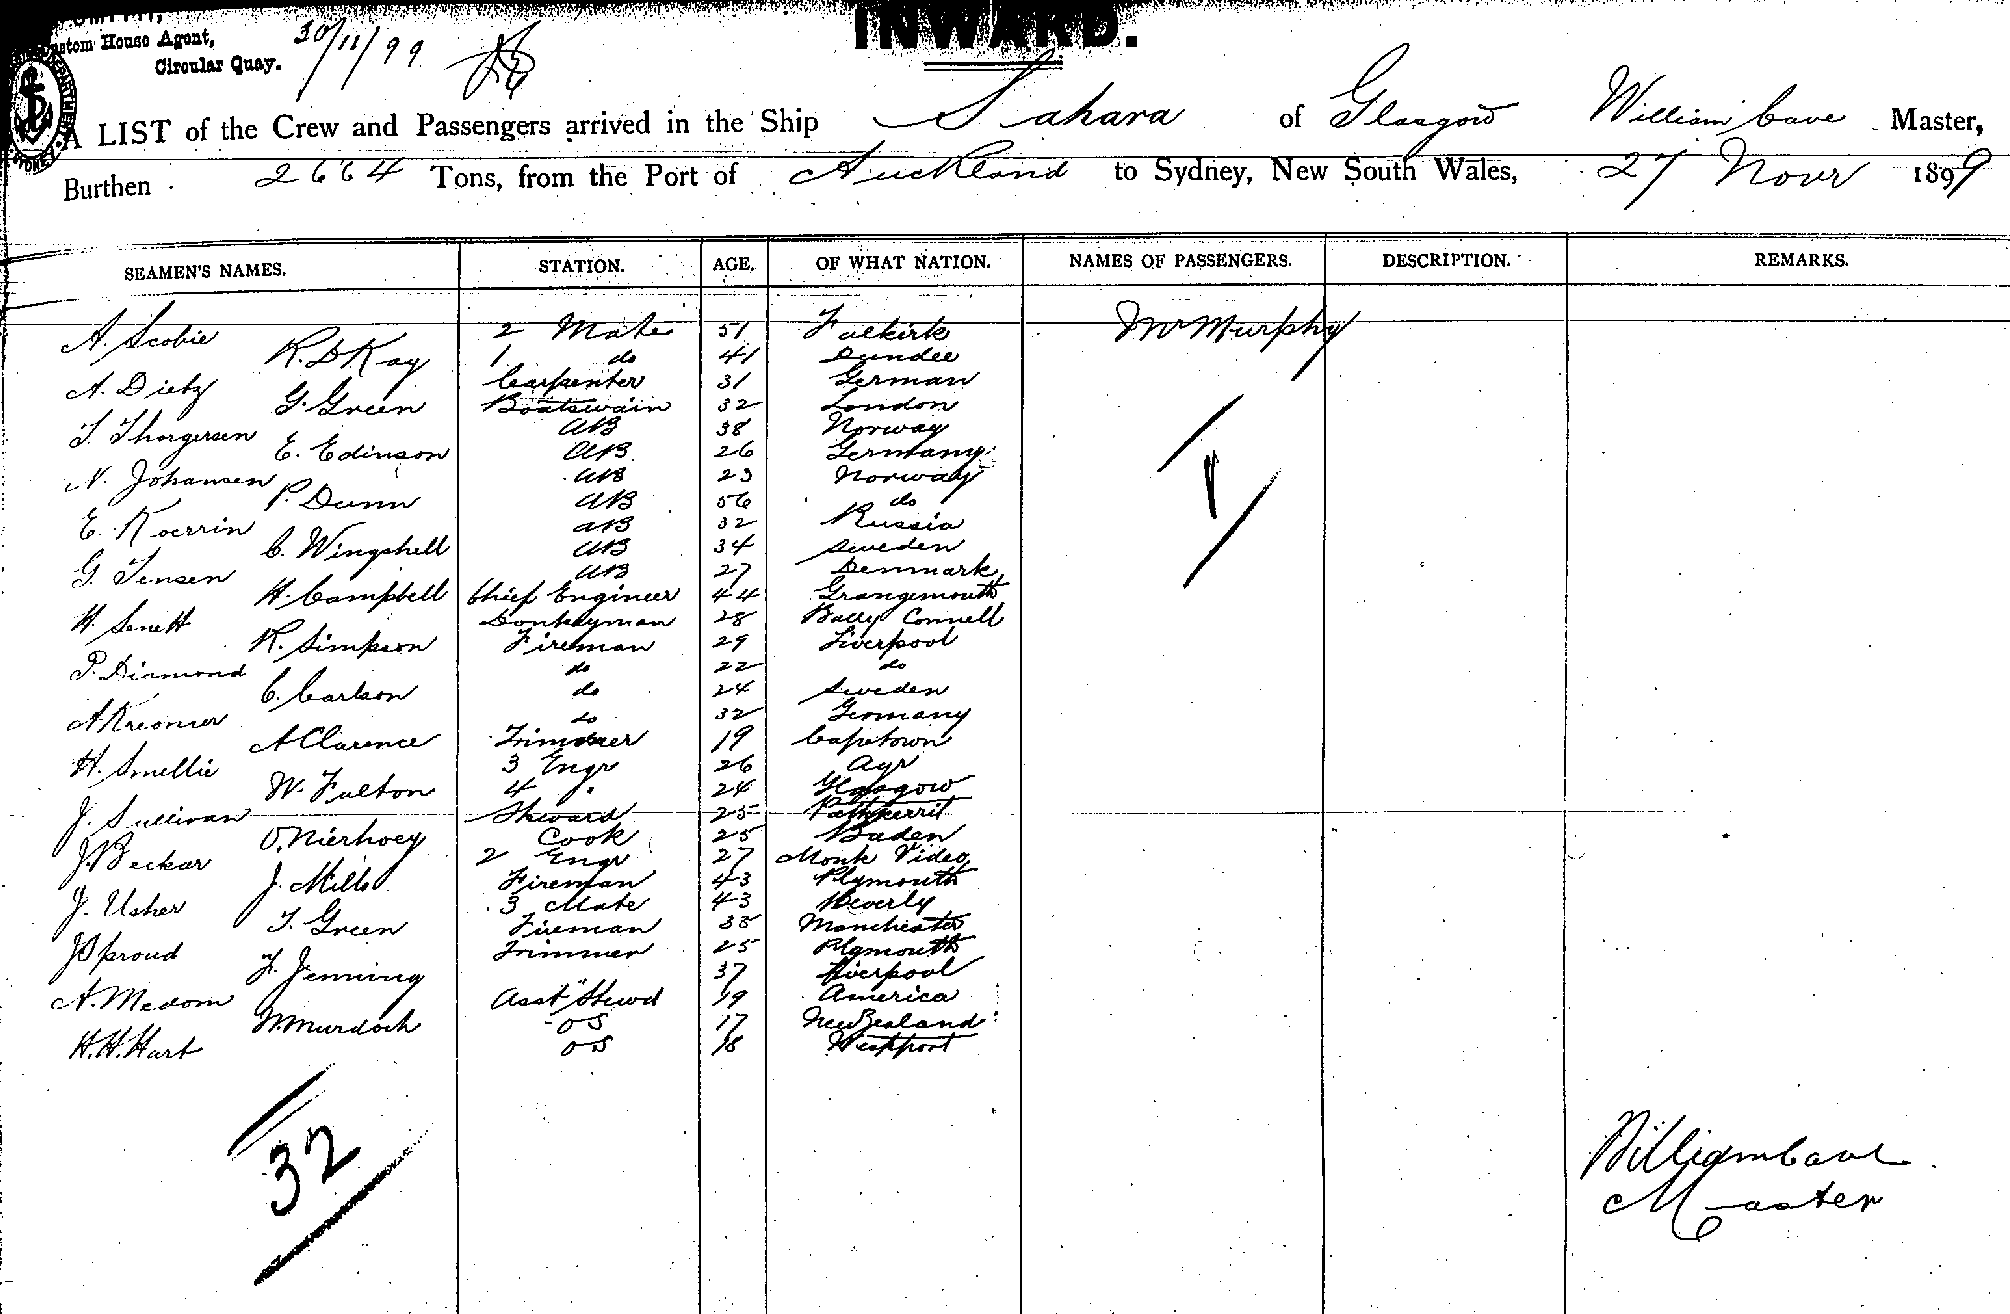 Custom House Agent,
Circular Quay.
30/11/99
INWARD.
A LIST of the Crew and Passengers arrived in the Ship Sahara of Glasgow William Cave Master,
Burthen 2664 Tons, from the Port of Auckland to Sydney, New South Wales, 27 Novr 1899
SEAMEN'S NAMES. STATION. AGE. OF WHAT NATION. NAMES OF PASSENGERS. DESCRIPTION. REMARKS.
A. Scobie 2 Mate 51 Falkirk Mr Murphy
R. D Kay 1 do 41 Dundee
A. Dietz Carpenter 31 German
G. Green Boatswain 32 London
T. Thorgersen AB 38 Norway
E. Edinson AB 26 Germany
N. Johansen AB 23 Norway
P. Dunn AB 56 do
E. Koerrin AB 32 Russia
C. Wingshell AB 34 Sweden
G. Jensen AB 27 Denmark
H. Campbell Chief Engineer 44 Grangemouth
H. Senett Donkeyman 28 Bally Connell
R. Simpson Fireman 29 Liverpool
P. Diamond do 22 do
C. Carlson do 24 Sweden
A Kreomer do 32 Germany
A Clarence Trimmer 19 Capetown
H. Smellie 3 Engr 26 Ayr
W. Fulton 4 " 24 Glasgow
J. Sullivan Steward 25
O. Nierhoey Cook 25 Baden
J. Beckar 2 Engr 27 Monte Video
J. Mills Fireman 43 Plymouth
J. Usher 3 Mate 43 Beverly
T. Green Fireman 35 Manchester
J Sproud Trimmer 25 Plymouth
F. Jenning " 37 Liverpool
A. Medom Asst Stewd 19 America
W. Murdoch OS 17 New Zealand
H. H. Hart OS 18 Westport
1
32
William Cave
Master